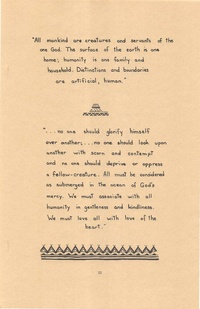 "All mankind are creatures and servants of the
one God. The surface of the earth is one
home; humanity is one family and
household. Distinctions and boundaries
are artificial, human."
"...no one should glorify himself
over another;...no one should look upon
another with scorn and contempt
and no one should deprive or oppress
a fellow-creature. All must be considered
as submerged in the ocean of God's
mercy. We must associate with all
humanity in gentleness and kindliness.
We must love all with love of the
heart."